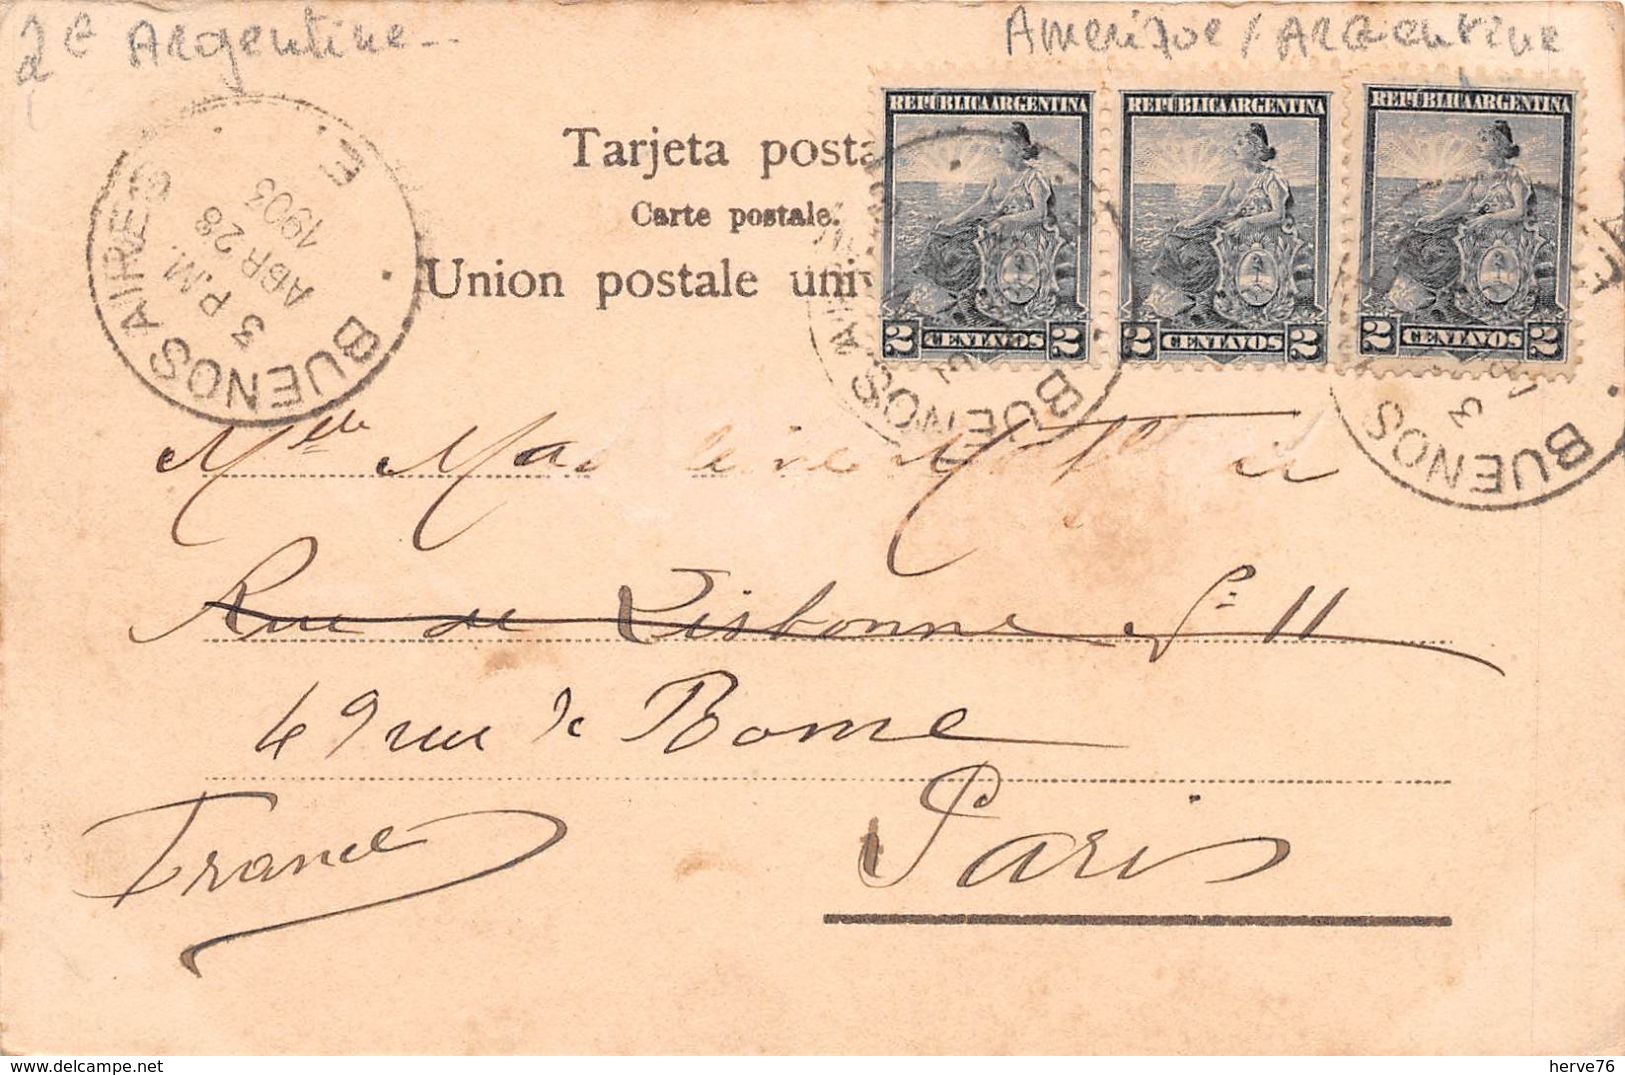 2€ Argentine--
Amerique / Argentine
REPÚBLICA ARGENTINA REPÚBLICA ARGENTINA REPÚBLICA ARGENTINA
2 CENTAVOS 2 2 CENTAVOS 2 2 CENTAVOS 2
BUENOS AIRES
3 P.M.
ABR 28
1903
E
BUENOS AIRES
3
BUENOS
3
Tarjeta posta
Carte postale.
Union postale univ
Melle Madeleine
Rue de Lisbonne Nº 11
49 rue de Rome
Paris
France
herve76